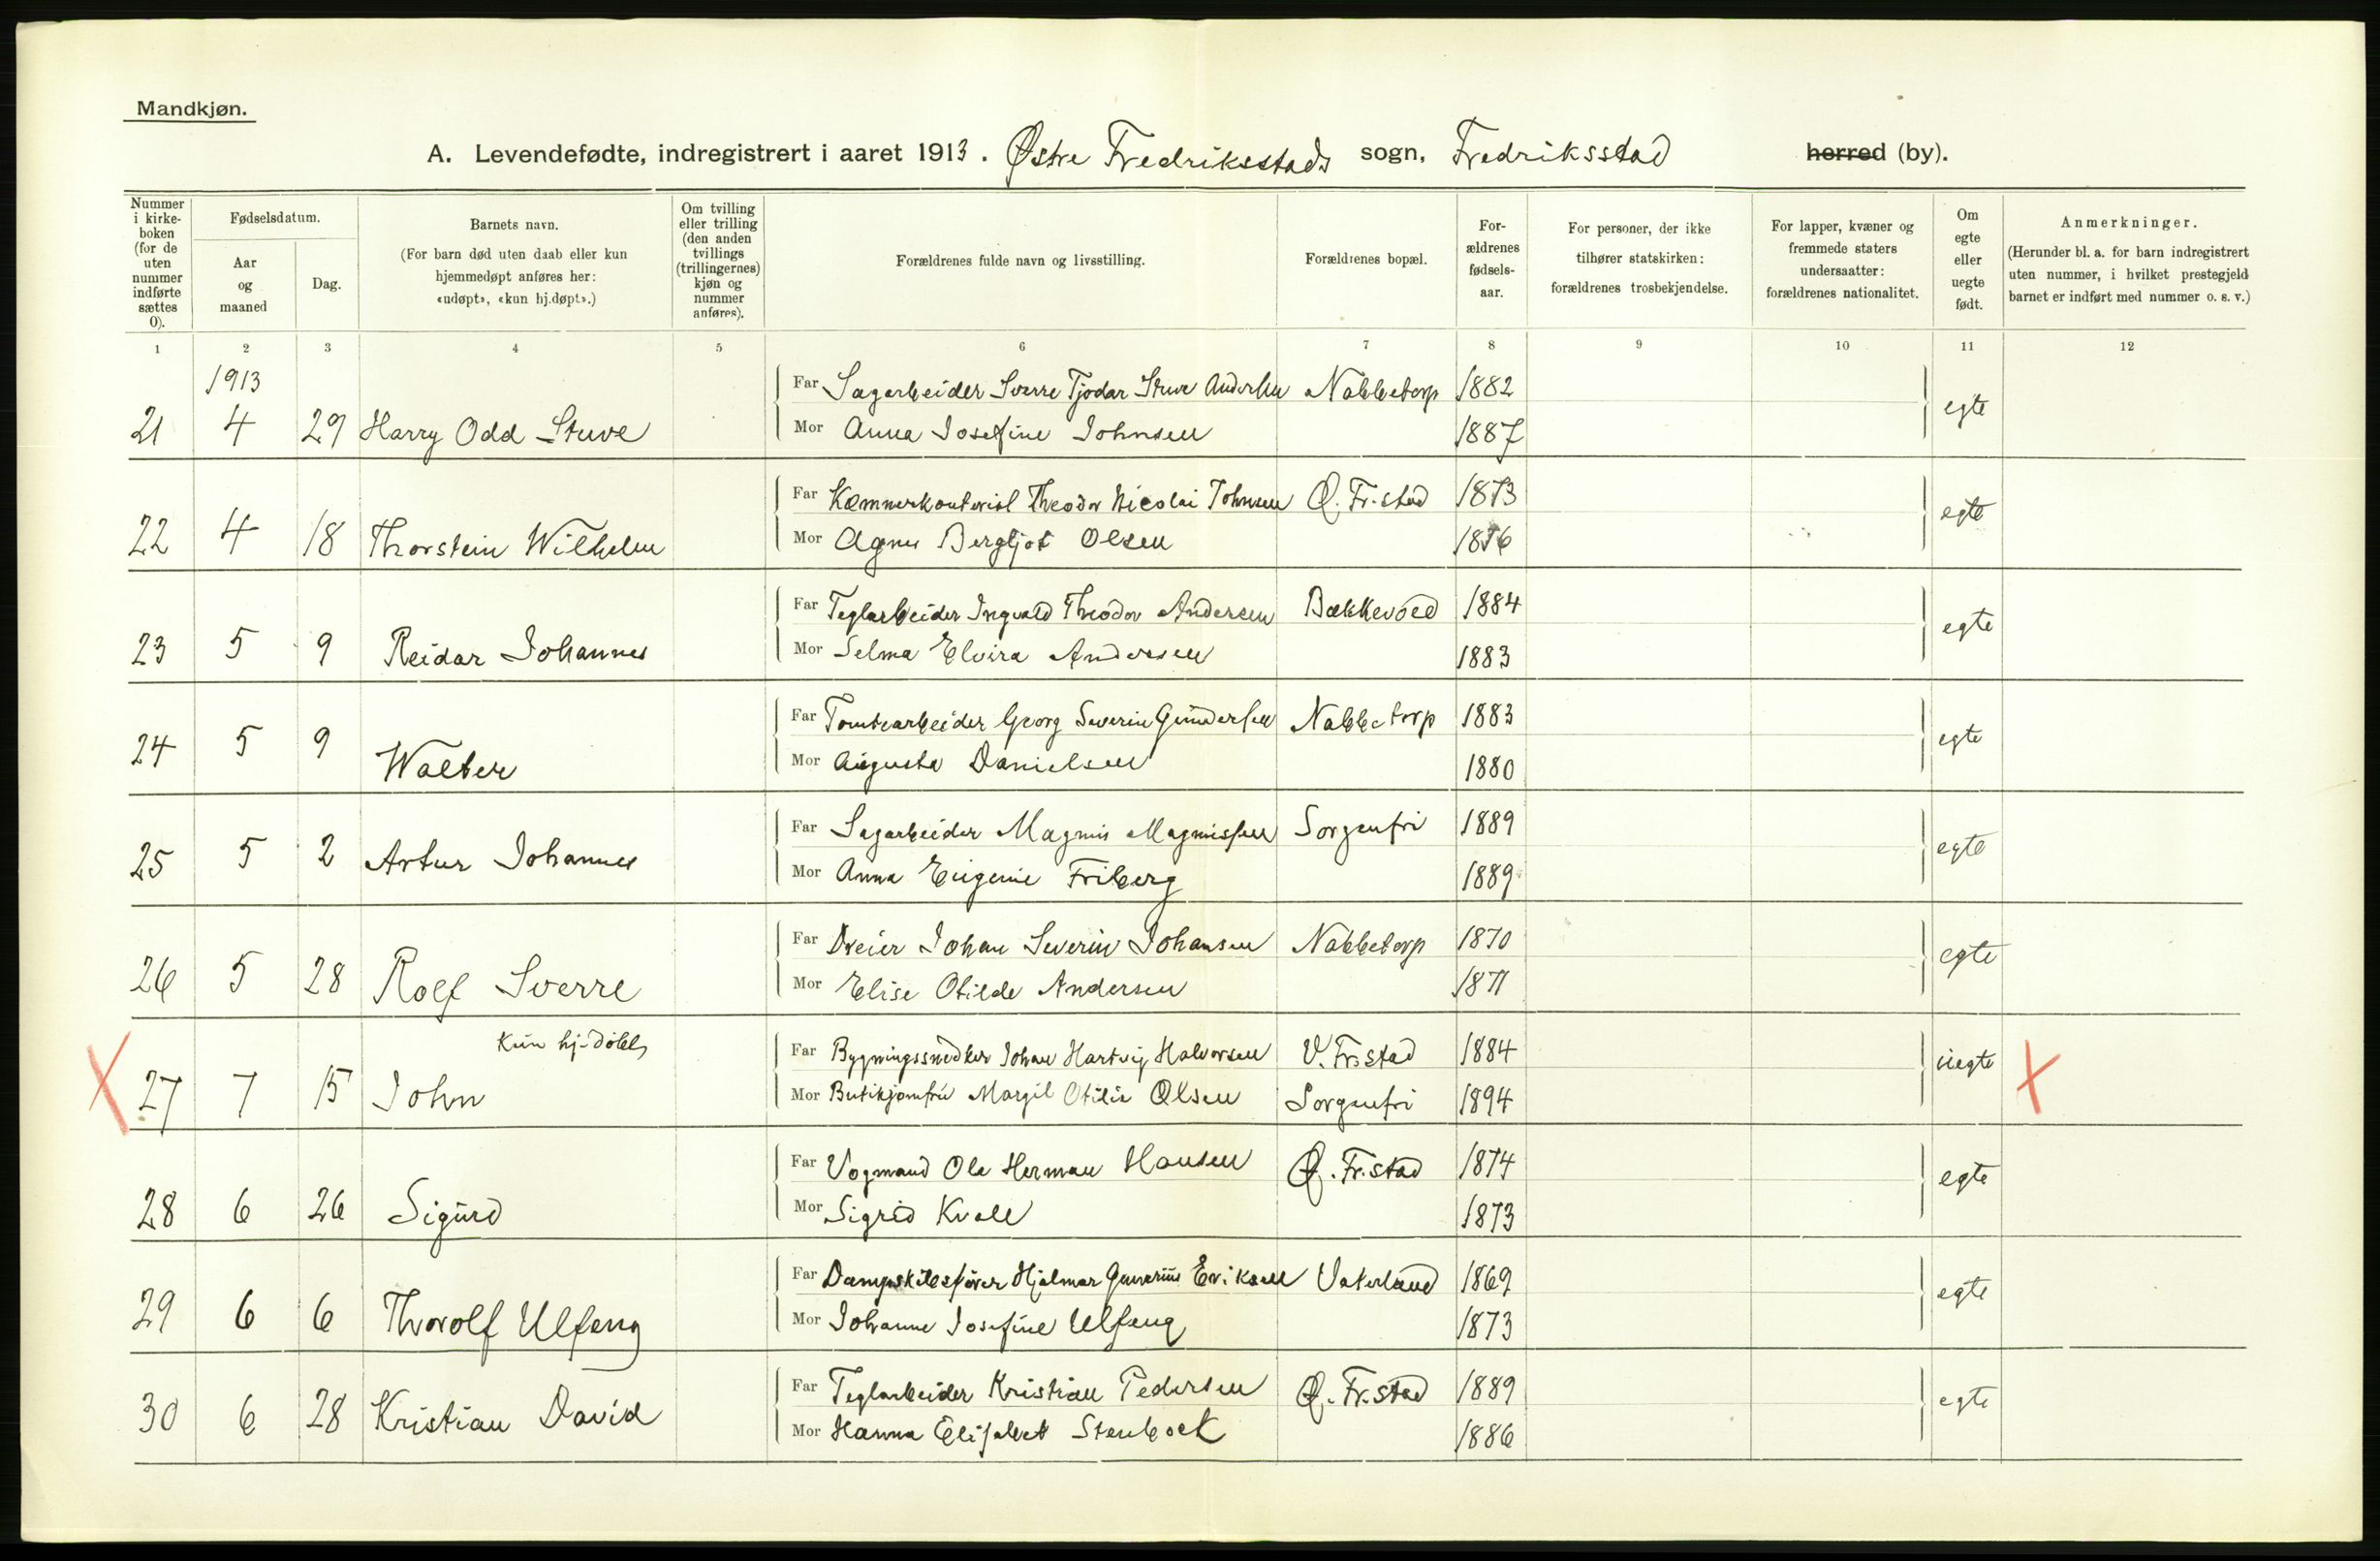 Mandkjøn.
A. Levendefødte, indregistrert i aaret 1913. Østre Fredriksstads sogn, Fredriksstad herred (by).
Nummer i kirke- boken (for de uten nummer indførte sættes 0).
Fødselsdatum.
Aar og maaned
Dag.
Barnets navn.
(For barn død uten daab eller kun hjemmedøpt anføres her: «udøpt», «kun hj.døpt».)
Om tvilling eller trilling (den anden tvillings (trillingernes) kjøn og nummer anføres).
Forældrenes fulde navn og livsstilling.
Forældrenes bopæl.
For- ældrenes fødsels- aar.
For personer, der ikke tilhører statskirken: forældrenes trosbekjendelse.
For lapper, kvæner og fremmede staters undersaatter: forældrenes nationalitet.
Om egte eller uegte født.
Anmerkninger.
(Herunder bl. a. for barn indregistrert uten nummer, i hvilket prestegjeld barnet er indført med nummer o. s. v.)
1 2 3 4 5 6 7 8 9 10 11 12
1913
Far Sagarbeider Sverre Tjodar Stuve Andersen Nabbetorp 1882
21 4 29 Harry Odd Stuve Mor Anna Josefine Johnsen 1887 egte
Far Kæmnerkontorist Theodor Nicolai Johnsen Ø. Fr.stad 1873
22 4 18 Thorstein Wilhelm Mor Agnes Bergljot Olsen 1876 egte
Far Teglarbeider Ingvald Theodor Andersen Bækkevold 1884
23 5 9 Reidar Johannes Mor Selma Elvira Andersen 1883 egte
Far Tomtearbeider Georg Severin Gundersen Nabbetorp 1883
24 5 9 Walter Mor Augusta Danielsen 1880 egte
Far Sagarbeider Magnus Magnussen Sorgenfri 1889
25 5 2 Artur Johannes Mor Anna Eugenie Friberg 1889 egte
Far Dreier Johan Severin Johansen Nabbetorp 1870
26 5 28 Rolf Sverre Mor Elise Otilde Andersen 1871 egte
Kun hj.døbt
Far Bygningssnedker Johan Hartvig Halvorsen V. Fr.stad 1884
27 7 15 John Mor Butikjomfru Margit Otilie Olsen Sorgenfri 1894 uegte
Far Vognmand Ole Herman Hansen Ø. Fr.stad 1874
28 6 26 Sigurd Mor Sigrid Kvale 1873 egte
Far Dampskibsfører Hjalmar Gunerius Eriksen Vaterland 1869
29 6 6 Thorolf Ulfeng Mor Johanne Josefine Ulfeng 1873 egte
Far Teglarbeider Kristian Pedersen Ø. Fr.stad 1889
30 6 28 Kristian David Mor Hanna Elisabet Stenbock 1886 egte